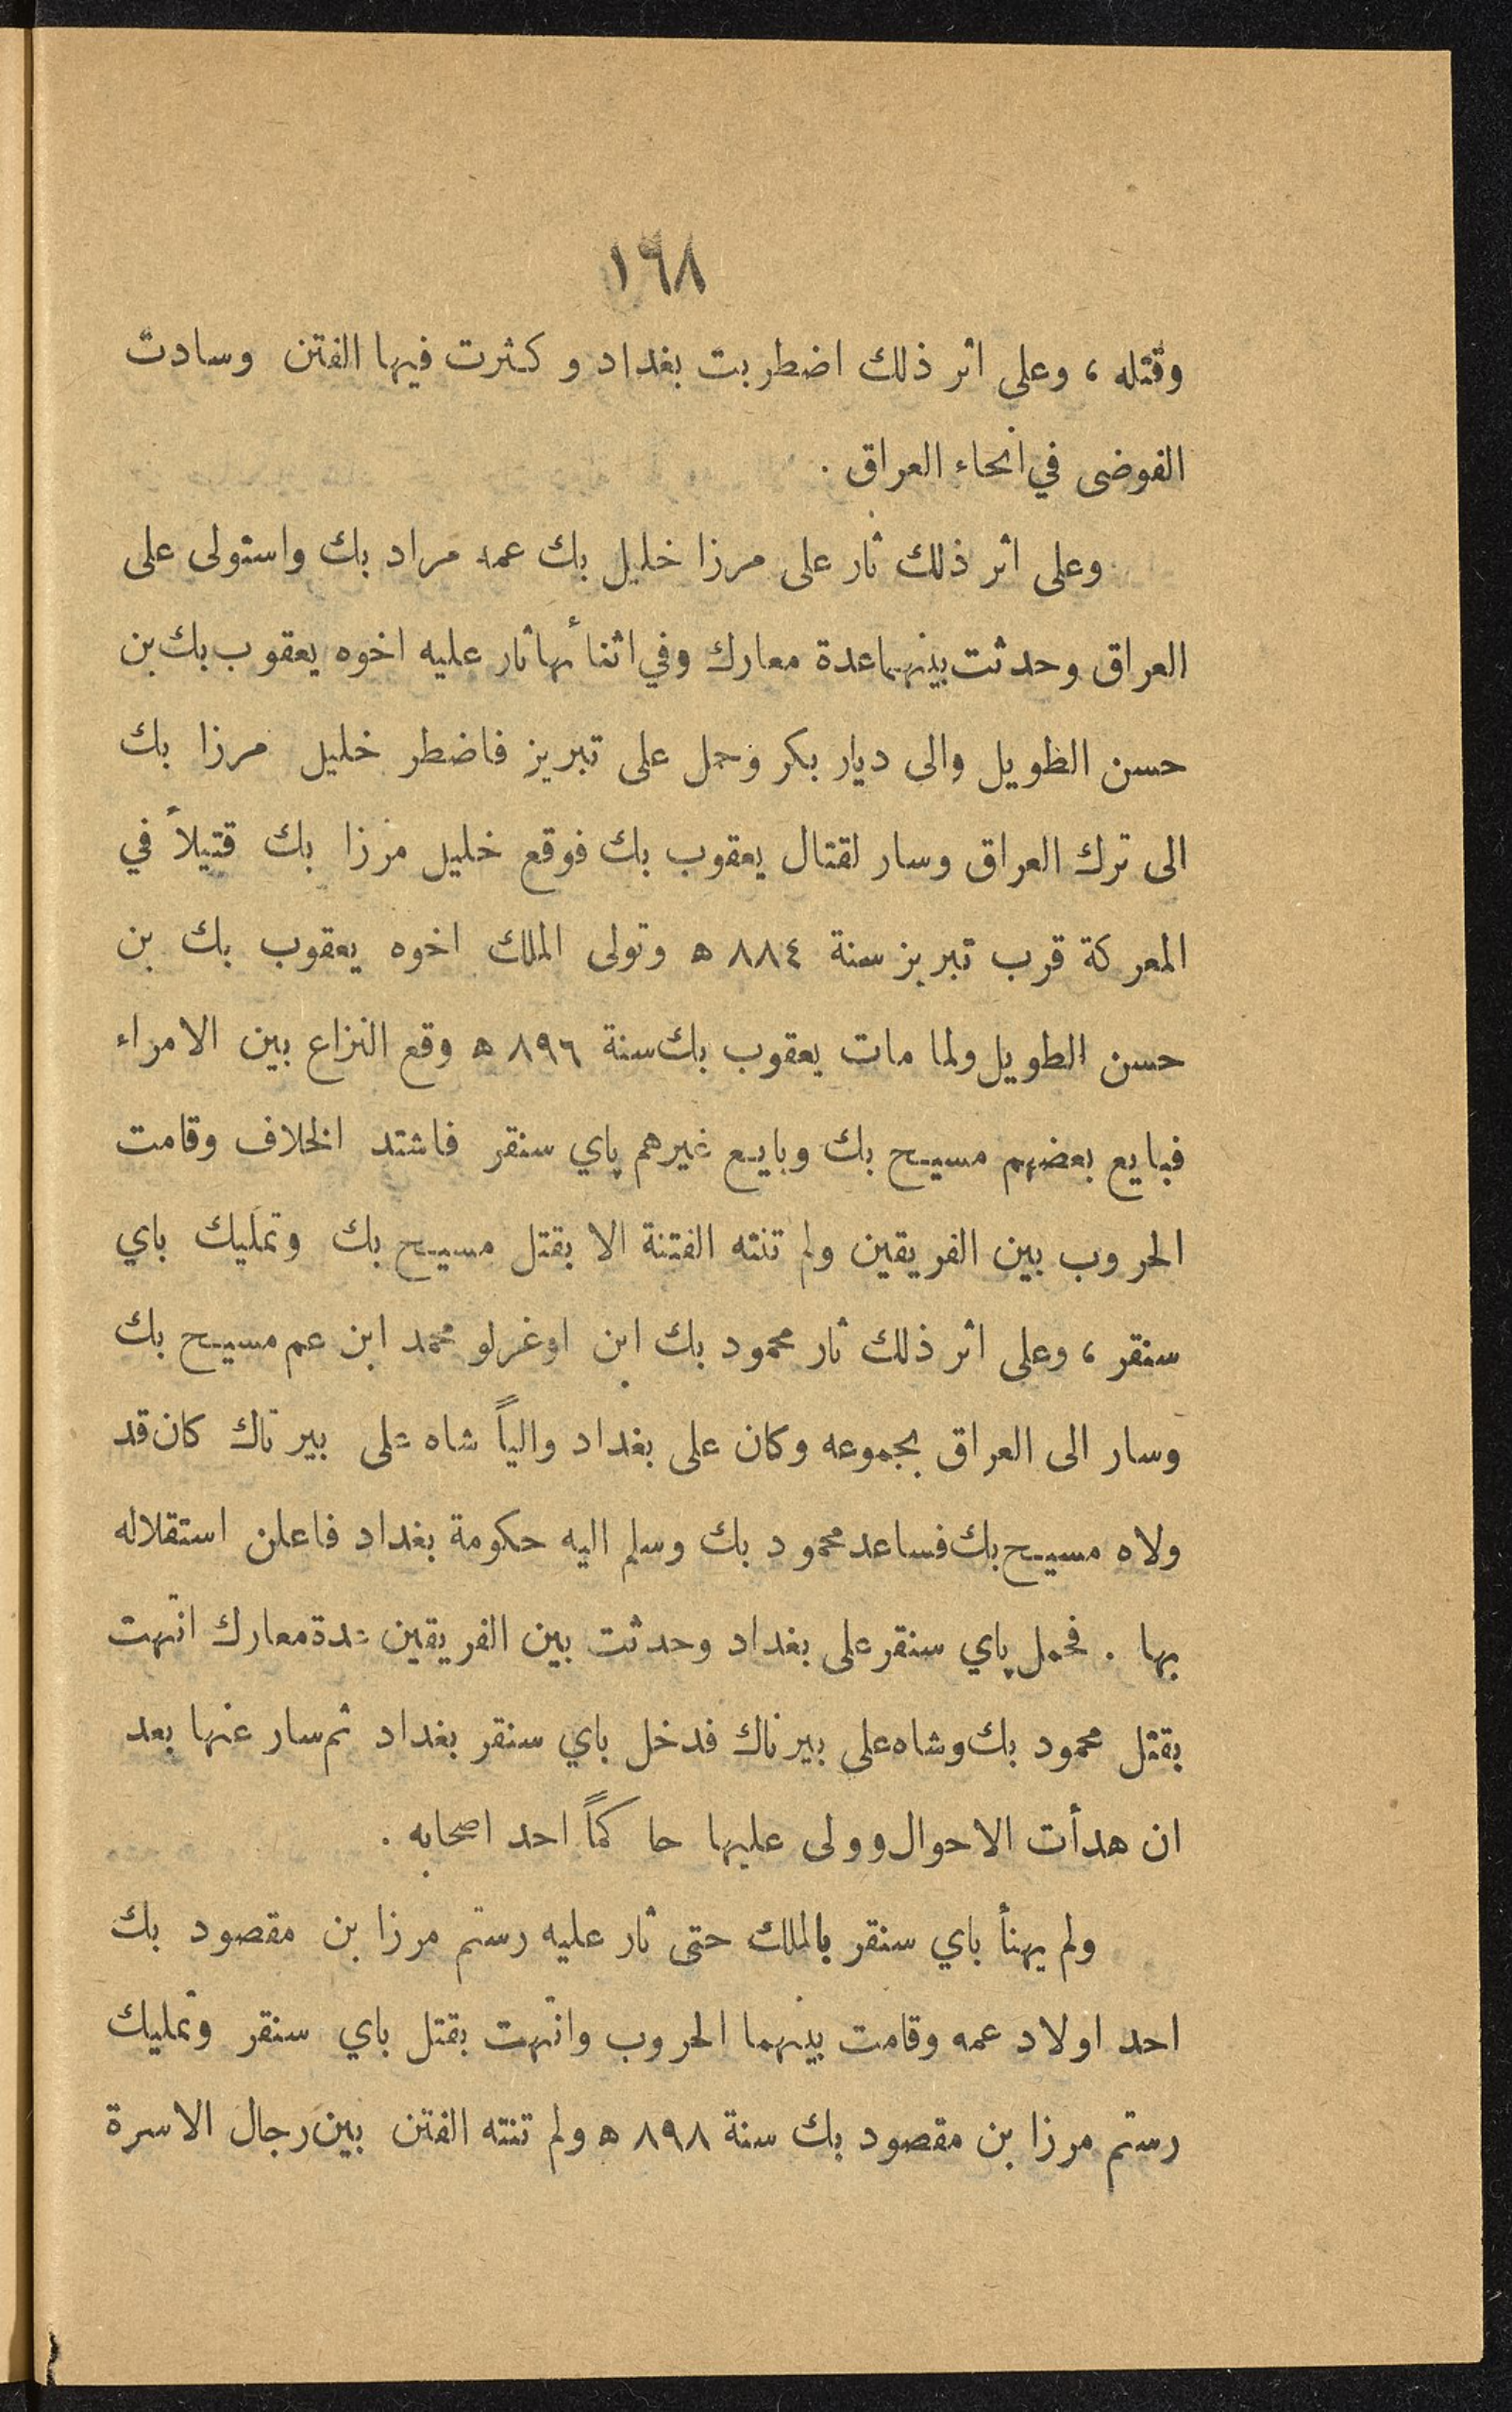 ١٦٨
وقتله ، وعلى اثر ذلك اضطربت بغداد وكثرت فيها الفتن وسادت
الفوضى في انحاء العراق .
وعلى اثر ذلك ثار على مرزا خليل بك عمه مراد بك واستولى على
العراق وحدثت بينهما عدة معارك وفي اثنائها ثار عليه اخوه يعقوب بك بن
حسن الطويل والى ديار بكر وحمل على تبريز فاضطر خليل مرزا بك
الى ترك العراق وسار لقتال يعقوب بك فوقع خليل مرزا بك قتيلاً في
المعركة قرب تبريز سنة ٨٨٤ ه وتولى الملك اخوه يعقوب بك بن
حسن الطويل ولما مات يعقوب بك سنة ٨٩٦ ه وقع النزاع بين الامراء
فبايع بعضهم مسيح بك وبايع غيرهم باي سنقر فاشتد الخلاف وقامت
الحروب بين الفريقين ولم تنته الفتنة الا بقتل مسيح بك وتمليك باي
سنقر ، وعلى اثر ذلك ثار محمود بك ابن اوغرلو محمد ابن عم مسيح بك
وسار الى العراق بجموعه وكان على بغداد والياً شاه على بيرناك كان قد
ولاه مسيح بك فساعد محمود بك وسلم اليه حكومة بغداد فاعلن استقلاله
بها . فحمل باي سنقر على بغداد وحدثت بين الفريقين عدة معارك انتهت
بقتل محمود بك وشاه على بيرناك فدخل باي سنقر بغداد ثم سار عنها بعد
ان هدأت الاحوال وولى عليها حاكماً احد اصحابه .
ولم يهنأ باي سنقر بالملك حتى ثار عليه رستم مرزا بن مقصود بك
احد اولاد عمه وقامت بينهما الحروب وانتهت بقتل باي سنقر وتمليك
رستم مرزا بن مقصود بك سنة ٨٩٨ ه ولم تنته الفتن بين رجال الاسرة